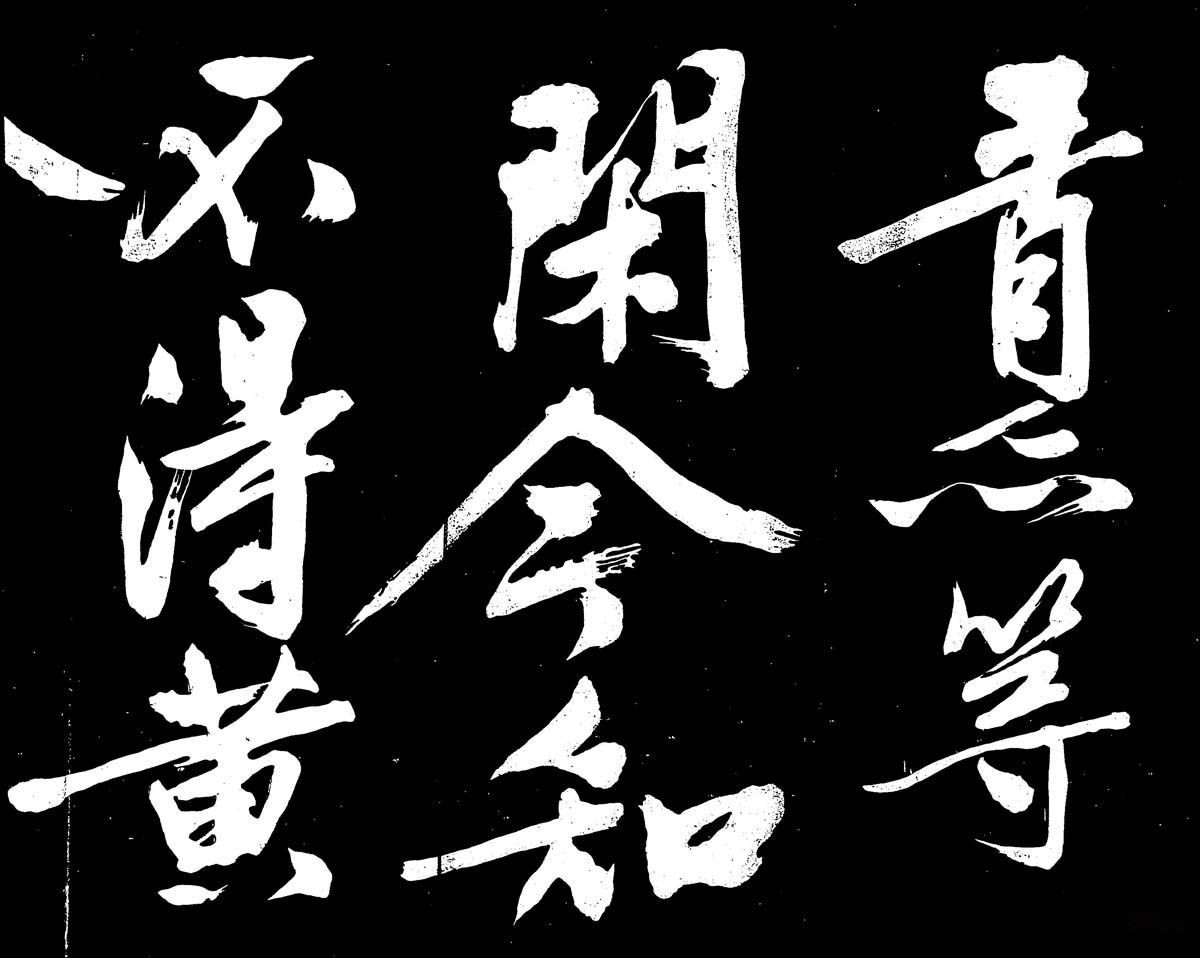 青亦等
閑今知
不得黄